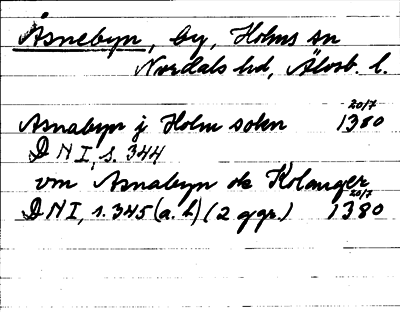 Åsnebyn, by, Holms sn
Nordals hd, Älvsb. l.
Asnabyn j Holm sokn 20/7 1380
DN I, s. 344
vm Asnabyn ok Kolanger
DN I, s. 345 (a. h) (2 ggr.) 20/7 1380